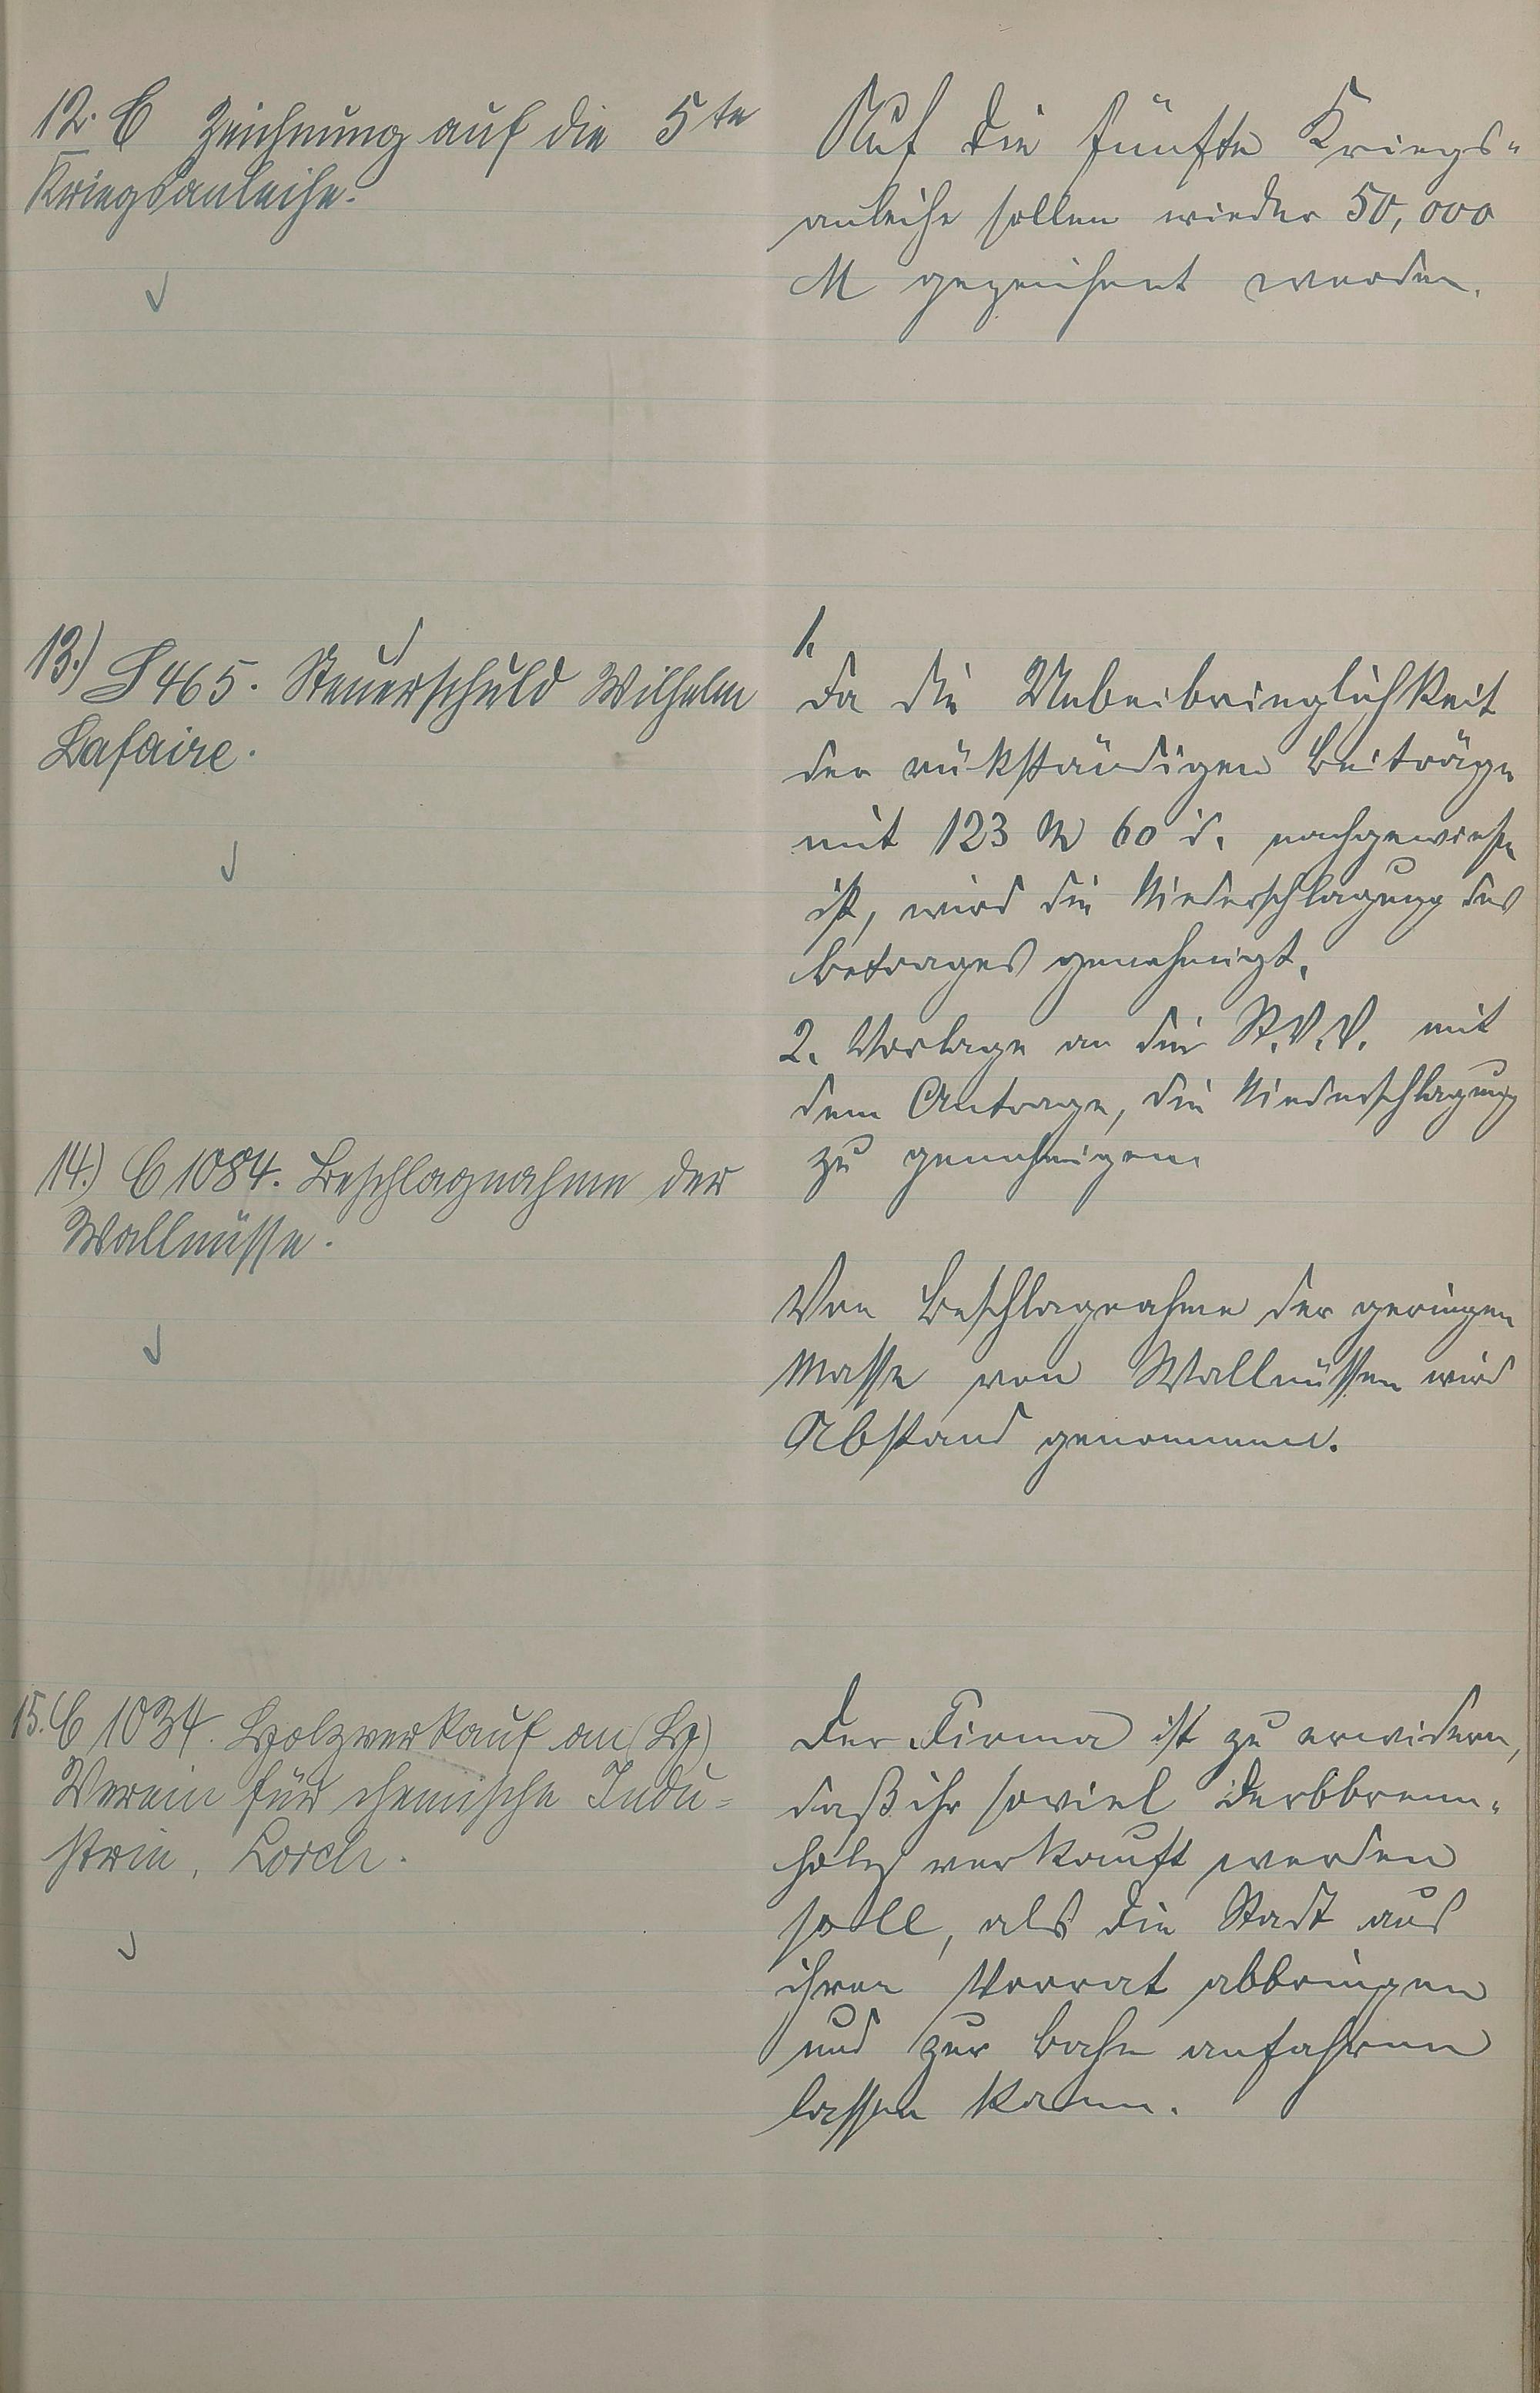 12. C Zeichnung auf die 5te
Kriegsanleihe.
Auf die fünfte Kriegs-
anleihe sollen wieder 50,000
M gezeichnet werden.
13.) S 465. Steuerschuld Wilhelm
Lafaire.
1.
Da die Unbeibringlichkeit
der rükständigen Beiträge
mit 123 M 60 d. nachgewiesen
ist, wird die Niederschlagung des
Betrages genehmigt.
2. Vorlage an die St.V.V. mit
dem Antrage, die Niederschlagung
zu genehmigen.
14.) C 1084. Beschlagnahme der
Wallnüsse.
Von Beschlagnahme der geringen
Masse von Wallnüssen wird
Abstand genommen.
15. C 1034. Holzverkauf an
Verein für chemische Indu=
strie, Lorch.
Der Firma ist zu erwidern,
daß ihr soviel Derbbrenn-
holz verkauft werden
soll, als die Stadt aus
ihrem Vorrat abbringen
und zur Bahn anfahren
lassen kann.